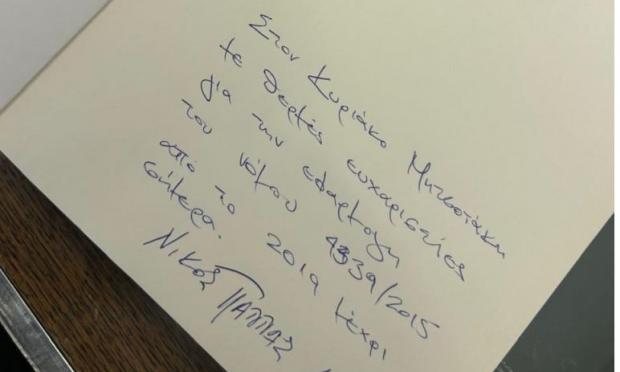 Στον Κυριάκο Μητσοτάκη
με θερμές ευχαριστίες
για την εφαρμογή
του νόμου 4339/2015
από το 2019 μέχρι
σήμερα.
ΝΙΚΟΣ ΠΑΠΠΑΣ